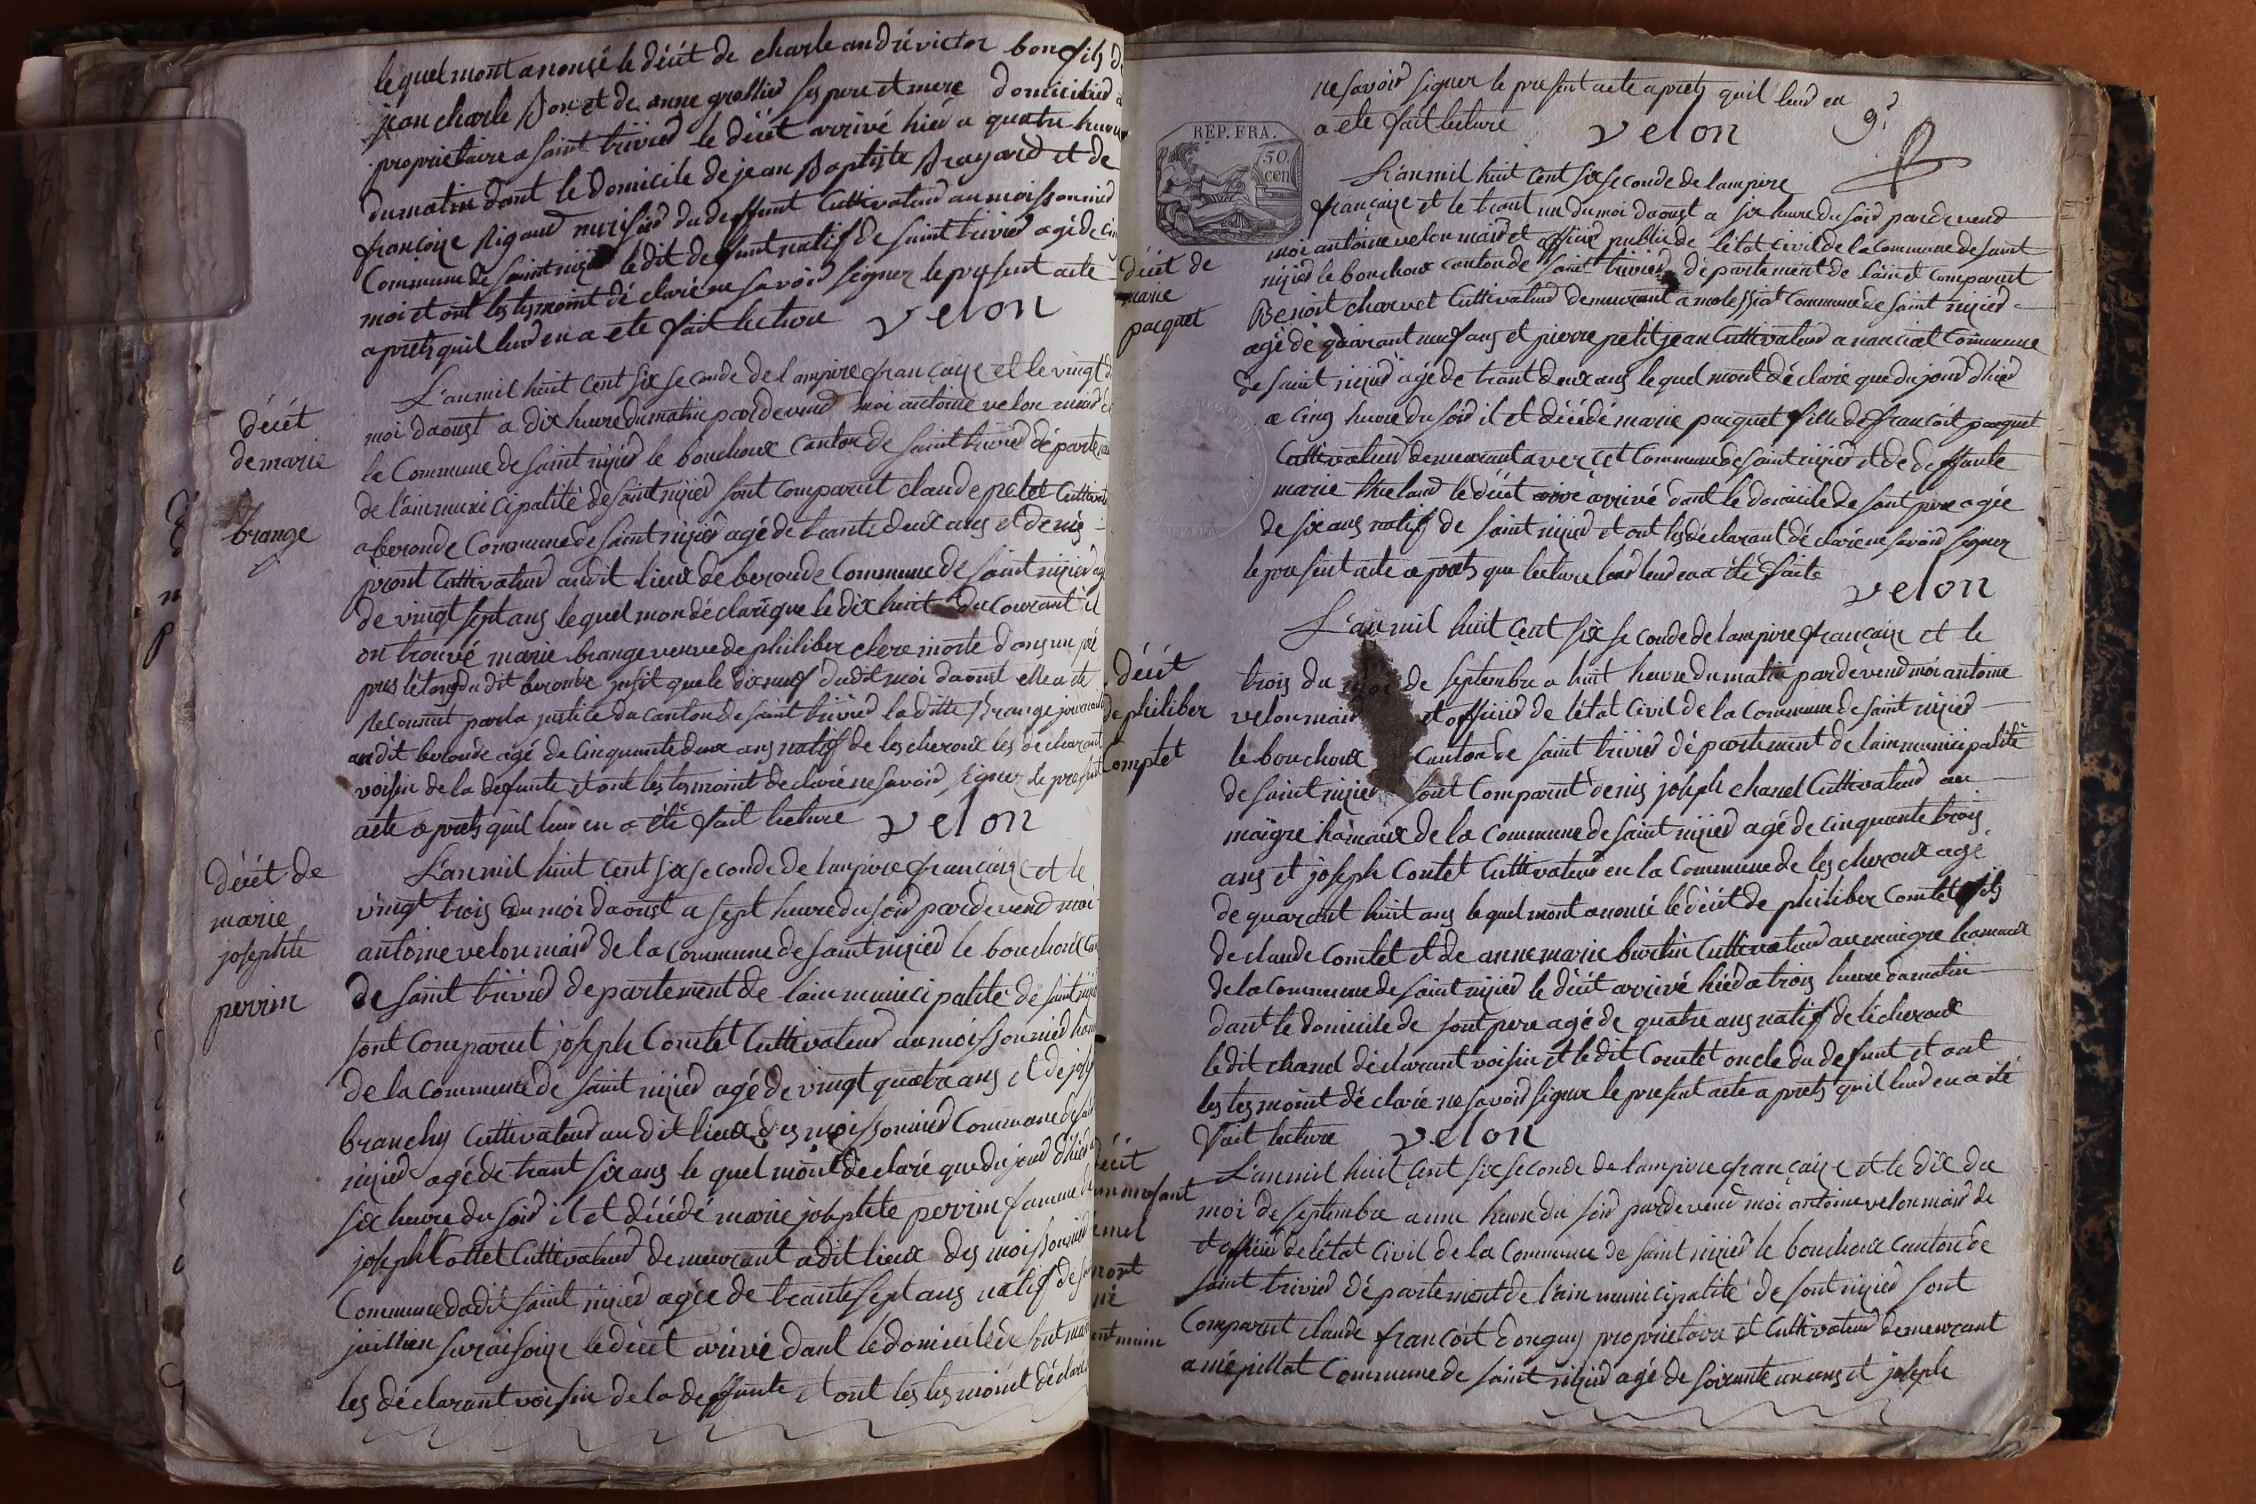 lequel mont anoncé le décét de charle andré victor bon fils d
jean charle Bon et de anne grossier ses pere et mere domicilier a
proprietaire a saint trivier le décét arrivé hier a quatre heure
du matin dant le domicile de jean Baptiste Brayard et de
françoise Rigaud nurisier du deffunt Cultivateur au moissonnier
Commune de saint nizier le dit deffunt natif de saint trivier agé de cin
moi et ont les tesmoint déclaré ne savoir signer le present acte
aprets quil leur en a ete fait lecture velon
décét
de marie
brange
L'an mil huit cent six seconde de lampire françaize et le vingt d
moi daoust a dix heure du matin par devend moi antoine velon maire d
la Commune de saint nizier le bouchoux canton de saint trivier départe
de l'ain municipalité de saint nizier sont comparut claude pelet Cultivate
a beronde Commune de saint nizier agé de trante deux ans et denis
pront Cultivateur au dit lieux de beronde Commune de saint nizier agé
de vingt sept ans lequel mon déclaré que le dix huit du Courant il
on trouvé marie brange veuve de philiber clere morte dans un pré
pres létang du dit beronde jusit que le dix neuf dudit moi daoust elle a ete
Reconnut par la justice du canton de saint trivier la ditte Brange journaliere
au dit beronde agé de Cinquante deux ans natif de les cheroux les déclarant
voisin de la defunte et ont les tesmoint declaré ne savoir signer le present
acte aprets quil leur en a été fait lecture velon
décét de
marie
josephte
perrin
L'an mil huit cent six seconde de lampire françaize et le
vingt trois du moi daoust a sept heure du soir par devend moi
antoine velon maire de la commune de saint nizier le bouchoux can
de saint trivier departement de lain municipalité de saint nizier
sont comparut joseph Comtet Cultivateur au moissonnier ham
de la commune de saint nizier agé de vingt quatre ans et de jose
branchy Cultivateur au dit lieux des moissonnier Commune de sain
nizier agé de trant six ans le quel mont déclaré que du jour d'hier
six heure du soir il et décédé marie josephte perrin famme de
joseph Cottet Cultivateur demeurant a dit lieux des moissonnier
Commune dudit saint nizier agée de trante sept ans natif de s
jullien sur raisouze le décét arivé dant le domicile de sont mari
les déclarant voisin de la deffunte et ont les tesmoint déclaré
ne savoir signer le present acte aprets quil leur en
a ete fait lecture velon
9.
REP. FRA.
50.
cen
décét de
marie
pacquet
L'an mil huit cent six seconde de lampire
françaize et le trant un du moi daoust a six heure du soir par devend
moi antoine velon maire et officier public de létat civil de la commune de saint
nizier le bouchoux canton de saint trivier département de l'ain et comparut
Benoit charvet Cultivateur demeurant a molessiat commune de saint nizier
agé de quarant neuf ans et pierre petitjean Cultivateur a narciat Commune
de saint nizier agé de trant deux ans lequel mont déclaré que du jour d'hier
a cinq heure du soir il et décédé marie pacquet fille de françoit pacquet
Cultivateur demeurant a vercet commune de saint nizier et de deffunte
marie thieland le décét arrivé dant le domicile de sont pere agée
de six ans natif de saint nizier et ont les déclarant déclaré ne savoir signer
le present acte aprets que lecture leur en a été faite velon
décét
de philiber
Comptet
L'an mil huit cent six seconde de lampire françaize et le
trois du moi de septembre a huit heure du matin par devend moi antoine
velon maire et officier de létat civil de la commune de saint nizier
le bouchoux Canton de saint trivier département de lain municipalité
de saint nizier sont comparut denis joseph chanel Cultivateur au
maigre hamaux de la commune de saint nizier agé de cinquante trois
ans et joseph Contet Cultivateur en la Commune de les cheroux agé
de quarant huit ans lequel mont anoncé le décét de philiber Comtet fils
de claude Comtet et de anne marie burtin Cultivateur au maigre hamaux
de la Commune de saint nizier le décét arrivé hier a trois heure du matin
dant le domicile de sont pere agé de quatre ans natif de lécheroux
le dit chanel déclarant voisin et le dit Comtet oncle du defunt et ont
les tesmoint déclaré ne savoir signer le present acte aprets quil leur en a été
fait lecture velon
décét
un enfant
mel
mort
né
L'an mil huit cent six seconde de lampire françaize et le dix du
moi de septembre a une heure du soir par devend moi antoine velon maire de
et officier de létat civil de la Commune de saint nizier le bouchoux canton de
saint trivier département de l'ain municipalité de sont nizier sont
Comparut claude françoit donguy proprietaire et Cultivateur demeurant
a mépillat Commune de saint nizier agé de soixante un ans et joseph